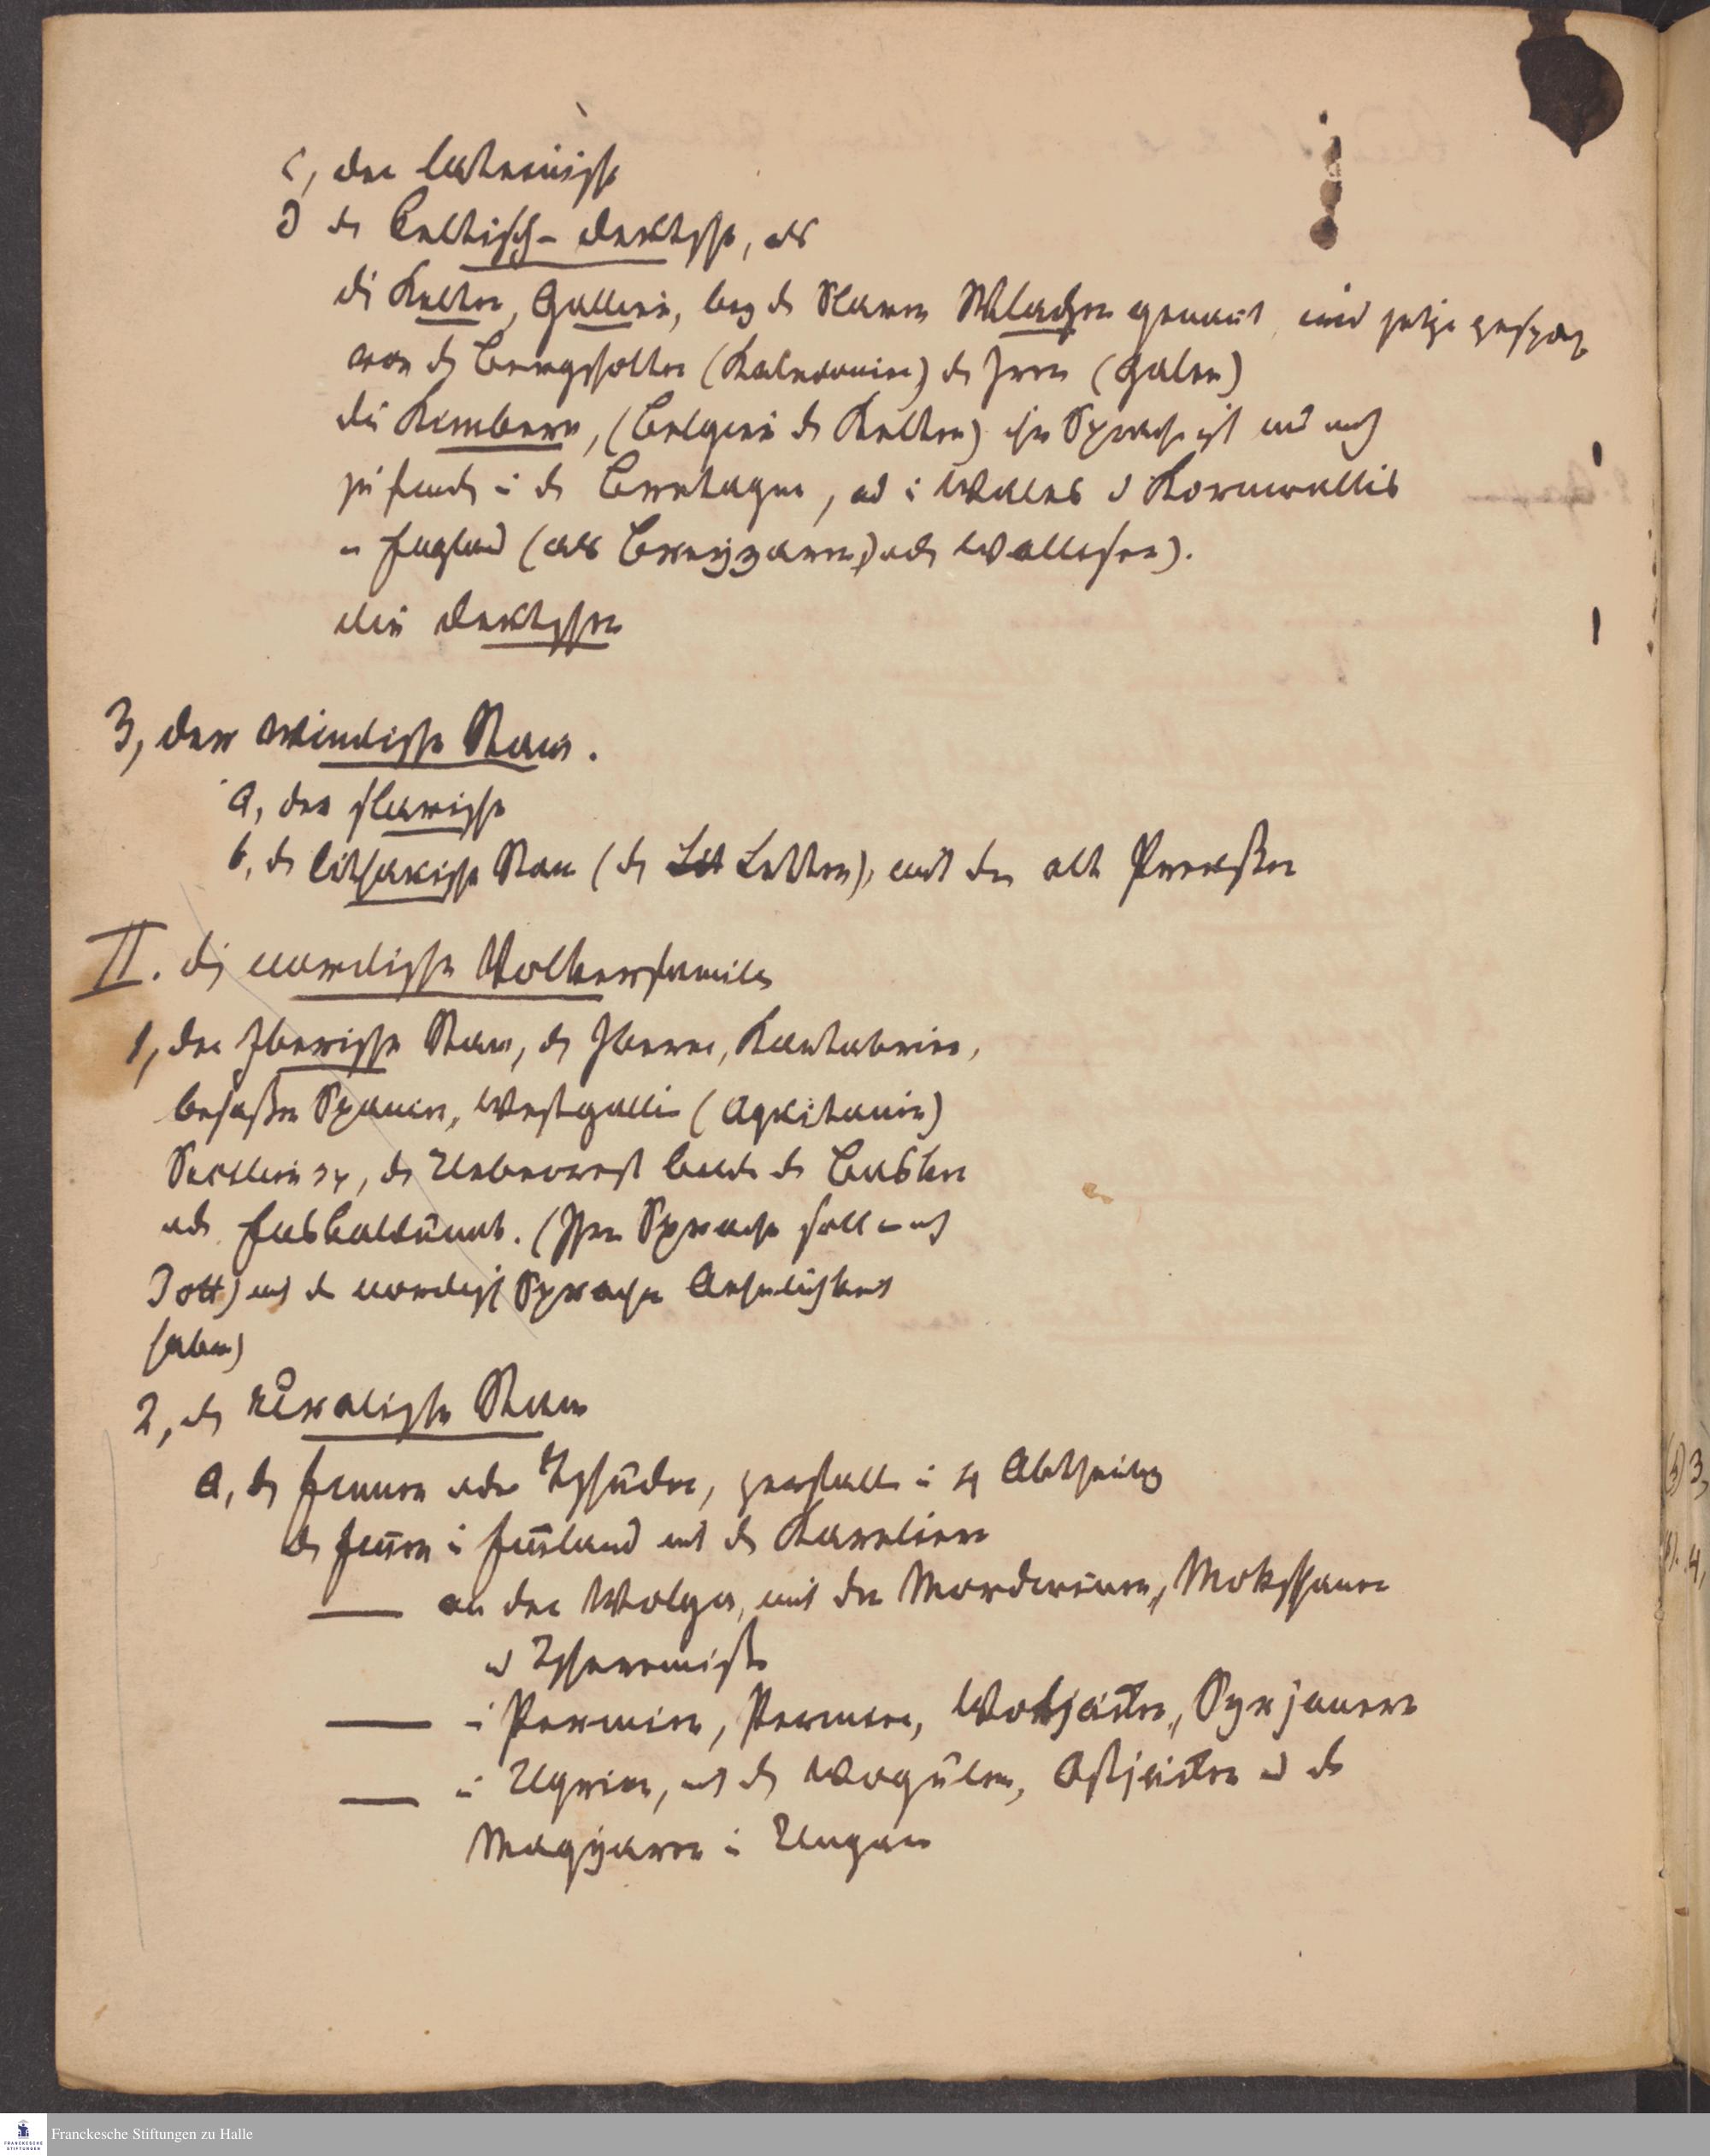 c, der lateinische
d der Celtisch-deutsche, als
die Kelten, Gallier, bey den Slaven Wlachen genant und jetzt gesproch
von den Bergschotten (Kaledonier) den Iren (Galen)
die Kimbern, (Belgier der Kelten) ihre Sprache ist nur noch
zu finden in der Bretagne, und in Wales u Kornwallis
in England (als Breyzaren) oder Wallesen).
die Deutschen
3, der windische Stam.
a, der slawische
b, der lithauische Stam (der Let Letten), mit den alt Preußen
II. die nordische Volkerfamilie
1, der Iberische Stam, die Iberer, Kantabrier,
besaßen Spanien, Westgallien (Aquitanien)
Sicilien, der Ueberrest beider die Basken
oder Euskaldunak. (Ihre Sprache soll nach
Jott) mit den nordisch Sprachen Aehnlichkeit
haben)
2, der uralische Stam
a, die Finnen oder Tschuden, zerfallen in 4 Abtheilung
die Finnen in Finland mit den Kareliern
— an der Wolga, mit den Mordwinen, Mokschanen
u Tscheremissen
— in Permien, Permier, Wotjaken, Syrjanen
— in Ugrien, mit den Wogulen, Ostjaken u den
Magyaren in Ungarn
(5) 3,
4,
Franckesche Stiftungen zu Halle